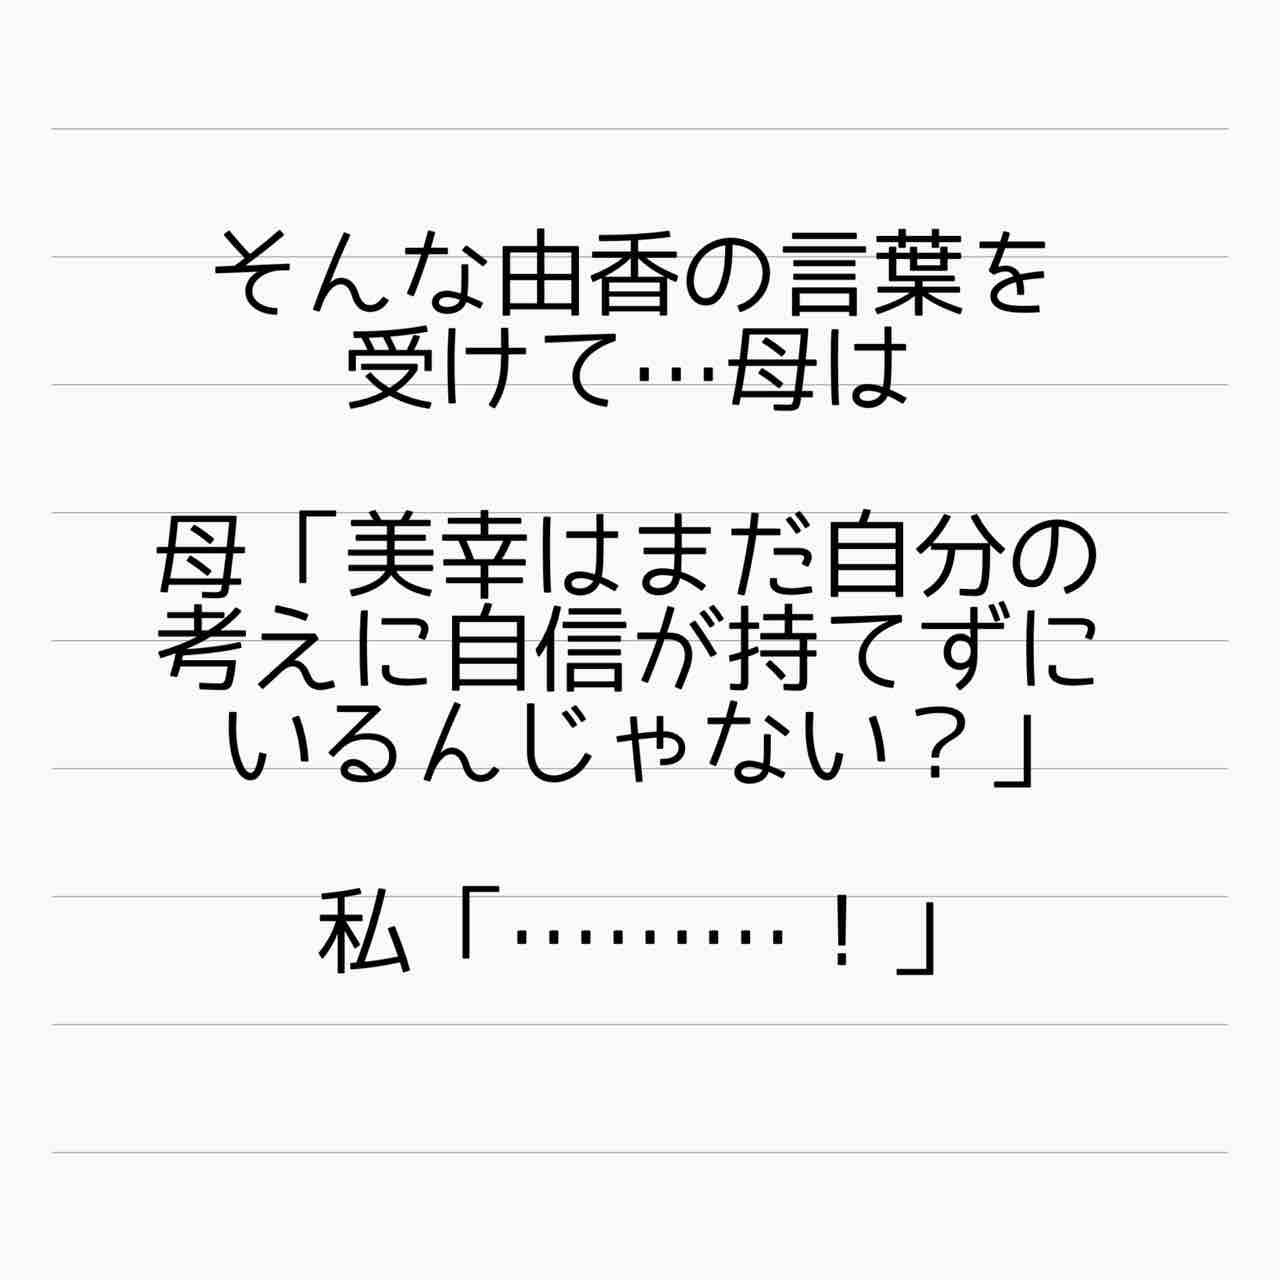 そんな由香の言葉を
受けて…母は
母「美幸はまだ自分の
考えに自信が持てずに
いるんじゃない？」
私「………！」